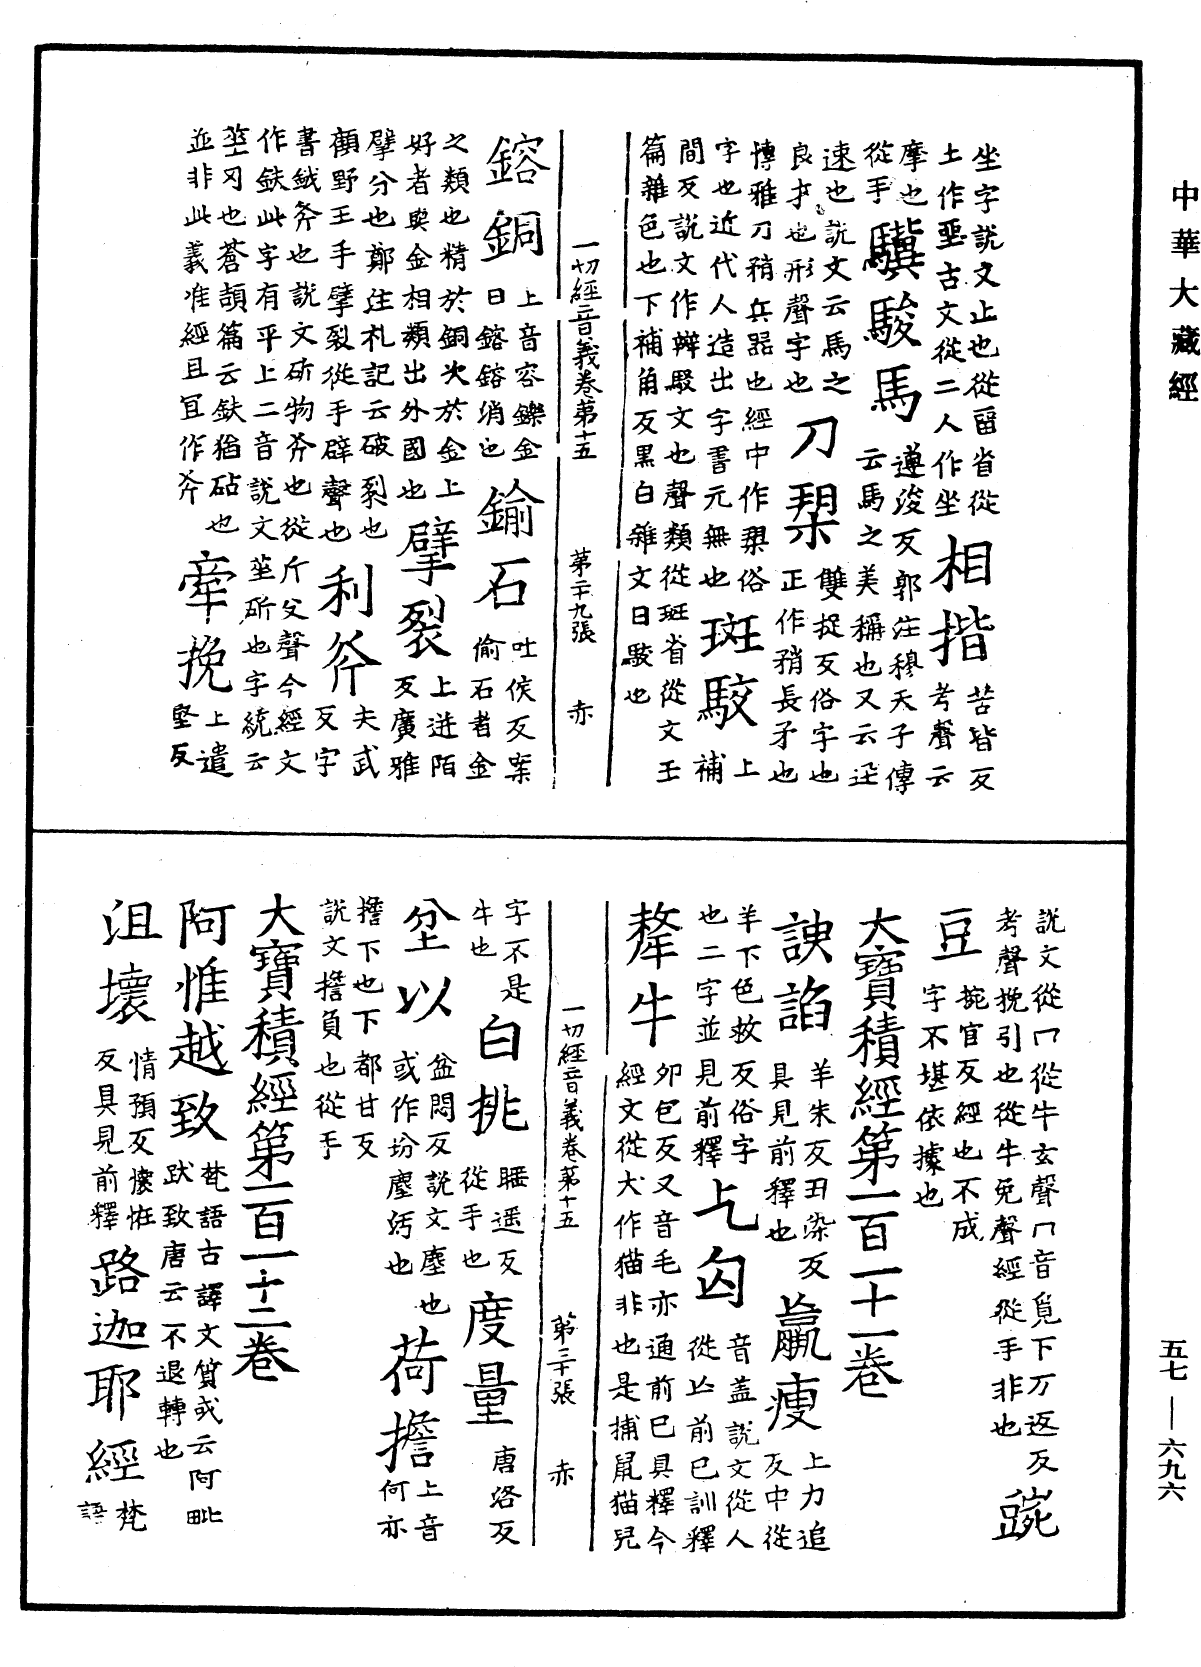 中華大藏經
坐字說文止也從畱省從
土作𡋲古文從二人作坐
相揩
苦皆反
考聲云
摩也
從手
驥駿馬
遵浚反郭注穆天子傳
云馬之美稱也又云迅
速也說文云馬之
良才也形聲字也
刀槊
雙捉反俗字也
正作矟長矛也
博雅刀矟兵器也經中作槊俗
字也近代人造出字書元無也
斑駮
上
補
間反說文作辬駁文也聲類從斑省從文王
篇雜色也下補角反黑白雜文曰駮也
一切經音義卷第十五 第二十九張 赤
鎔銅
上音容鑠金
曰鎔鎔消也
鍮石
吐侯反案
偷石者金
之類也精於銅次於金上
好者與金相類出外國也
擘裂
上迸陌
反廣雅
擘分也鄭注札記云破裂也
顧野王手擘裂從手辟聲也
利斧
夫武
反字
書鉞斧也說文斫物斧也從斤父聲今經文
作鈇此字有平上二音說文莝斫也字統云
莝刃也蒼頡篇云鈇猶砧也
並非此義准經且宜作斧
牽挽
上遣
堅反
說文從冂從牛玄聲冂音覓下万返反
考聲挽引也從牛免聲經從手非也
豌
豆
捥官反經也不成
字不堪依據也
大寶積經第一百一十一卷
諛諂
羊朱反丑染反
具見前釋也
羸瘦
上力追
反中從
羊下色救反俗字
也二字並見前釋
乞匃
音蓋說文從人
從亾前已訓釋
犛牛
卯包反又音毛亦通前已具釋今
經文從犬作猫非也是捕鼠猫兒
一切經音義卷第十五 第三十張 赤
字不是
牛也
白挑
遥反
從手也
度量
唐洛反
坌以
盆悶反說文塵也
或作坋塵污也
荷擔
上音
何亦
擔下也下都甘反
說文擔負也從手
大寶積經第一百一十二卷
阿惟越致
梵語古譯文質或云阿毗
跋致唐云不退轉也
沮壞
情預反懷恠
反具見前釋
路迦耶經
梵
語
五七—六九六